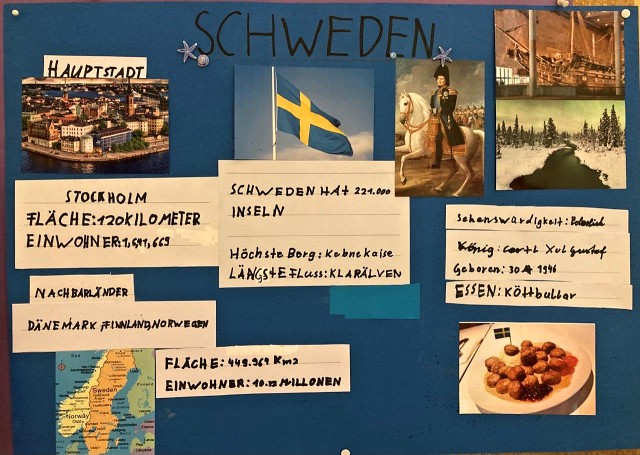 SCHWEDEN
HAUPTSTADT
STOCKHOLM
FLÄCHE:120KILOMETER
EINWOHNER:1,541,669
NACHBARLÄNDER
DÄNEMARK FINNLAND,NORWEGEN
SCHWEDEN HAt 221.000
INSELN
Höchste Berg: Kebnekaise
LÄNGSTE Fluss: KLARÄLVEN
FLÄCHE: 449.964 Km2
EINWOHNER: 10.12 MILLONEN
Sehenswürdigkeit:
König: Gustaf
Geboren: 30 4 1946
ESSEN: Köttbullar
Sweden
Norway